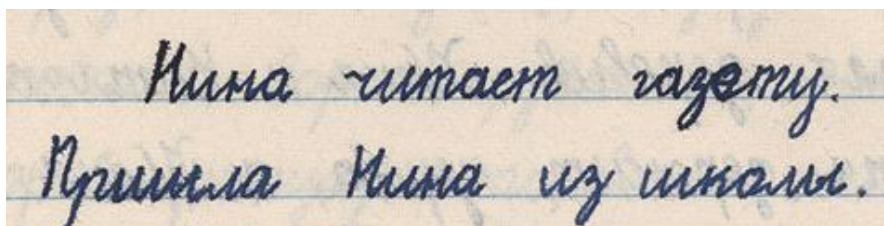 Нина читает газету.
Пришла Нина из школы.